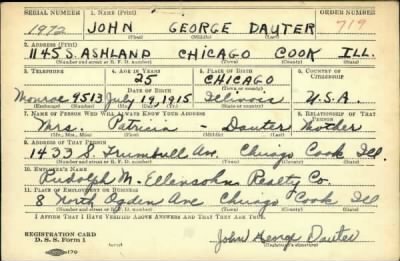 SERIAL NUMBER 1. NAME (Print) ORDER NUMBER
1972 JOHN GEORGE DAUTER 719
(First) (Middle) (Last)
2. ADDRESS (Print)
1145 S. ASHLAND CHICAGO COOK ILL.
(Number and street or R. F. D. number) (Town) (County) (State)
3. TELEPHONE 4. AGE IN YEARS 5. PLACE OF BIRTH 6. COUNTRY OF CITIZENSHIP
25 CHICAGO
DATE OF BIRTH (Town or county)
Monroe 9513 July 19, 1915 Illinois U.S.A.
(Exchange) (No.) (Mo.) (Day) (Yr.) (State or country)
7. NAME OF PERSON WHO WILL ALWAYS KNOW YOUR ADDRESS 8. RELATIONSHIP OF THAT PERSON
Mrs. Patricia Dauter Mother
(Mr., Mrs., Miss) (First) (Middle) (Last)
9. ADDRESS OF THAT PERSON
1433 S. Trumbull Av. Chicago Cook Ill
(Number and street or R. F. D. number) (Town) (County) (State)
10. EMPLOYER'S NAME
Rudolph M. Ellensohn Realty Co.
11. PLACE OF EMPLOYMENT OR BUSINESS
8 North Ogden Ave Chicago Cook Ill
(Number and street or R. F. D. number) (Town) (County) (State)
I AFFIRM THAT I HAVE VERIFIED ABOVE ANSWERS AND THAT THEY ARE TRUE.
REGISTRATION CARD
D. S. S. Form 1
John George Dauter
(Registrant's signature)